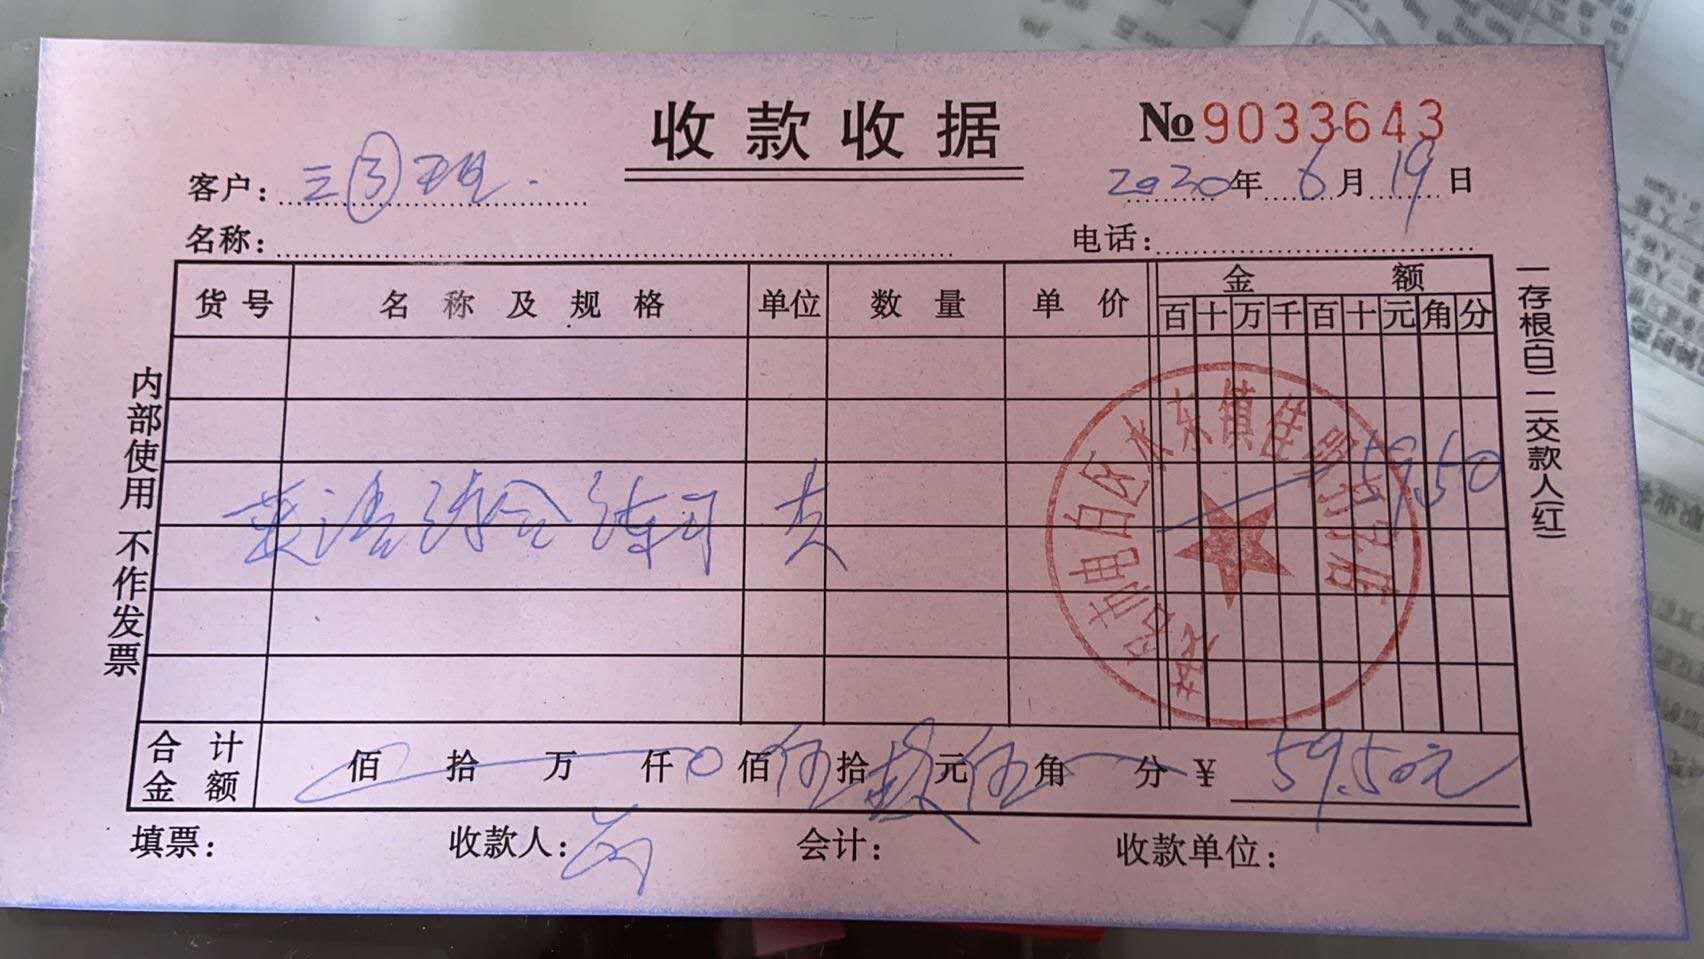 收款收据
№ 9033643
客户: 三③班.
2020年 6月 19日
名称: 电话:
货号 名称及规格 单位 数量 单价 金额
百 十 万 千 百 十 元 角 分
59.50
英语综合练习 费
合计金额 佰 拾 万 仟 0佰 伍拾 玖元 伍角 分 ¥ 59.50元
填票: 收款人: 会计: 收款单位:
内部使用 不作发票
一存根(白) 二交款人(红)
茂名市电白区水东镇佳